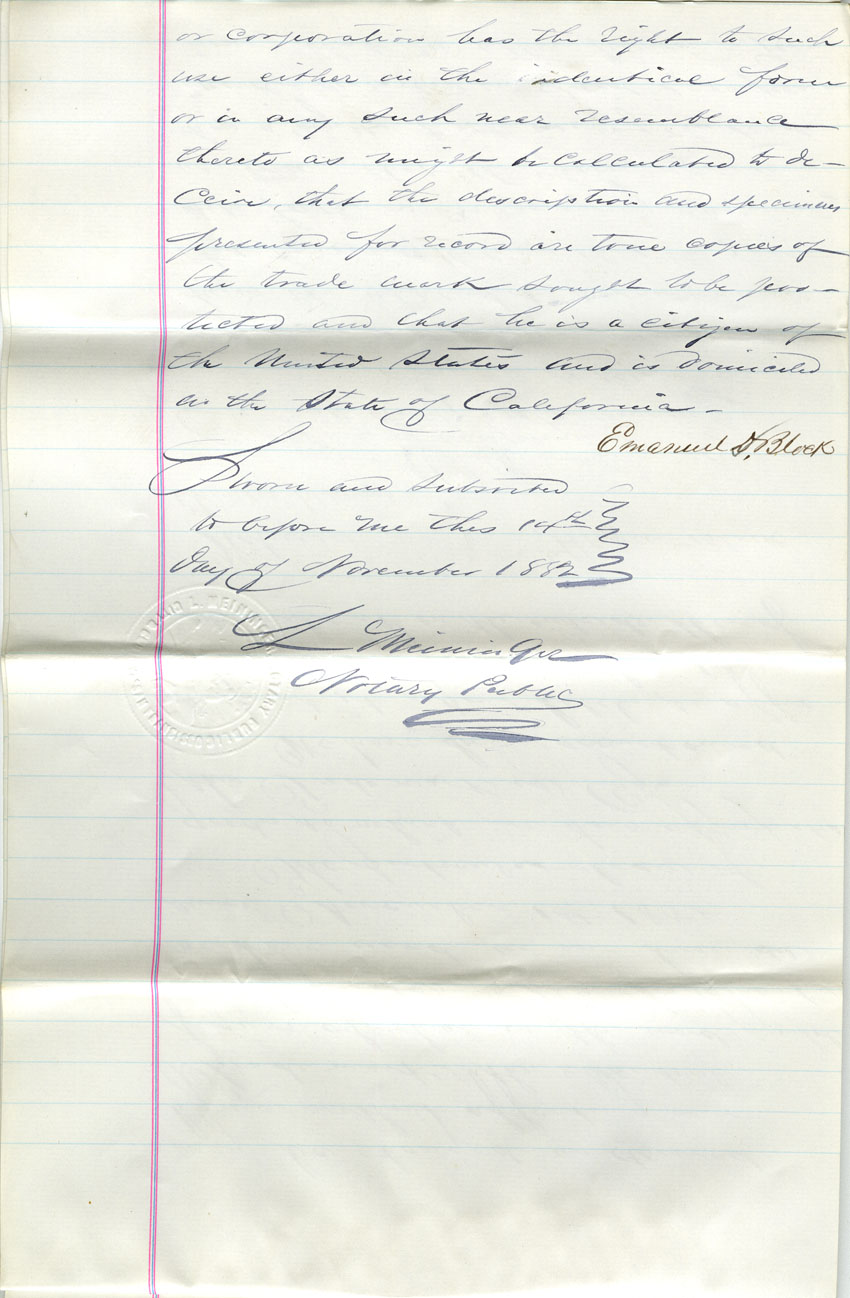 or corporation has the right to such
use either in the identical form
or in any such near resemblance
thereto as might be calculated to de-
ceive, that the description and specimens
presented for record are true copies of
the trade mark sought to be pro-
tected and that he is a citizen of
the United States and is domiciled
in the State of California -
Emanuel D. Block
Sworn and subscribed
to before me this 14th
day of November 1882
L Meininger
Notary Public
NOTARY PUBLIC